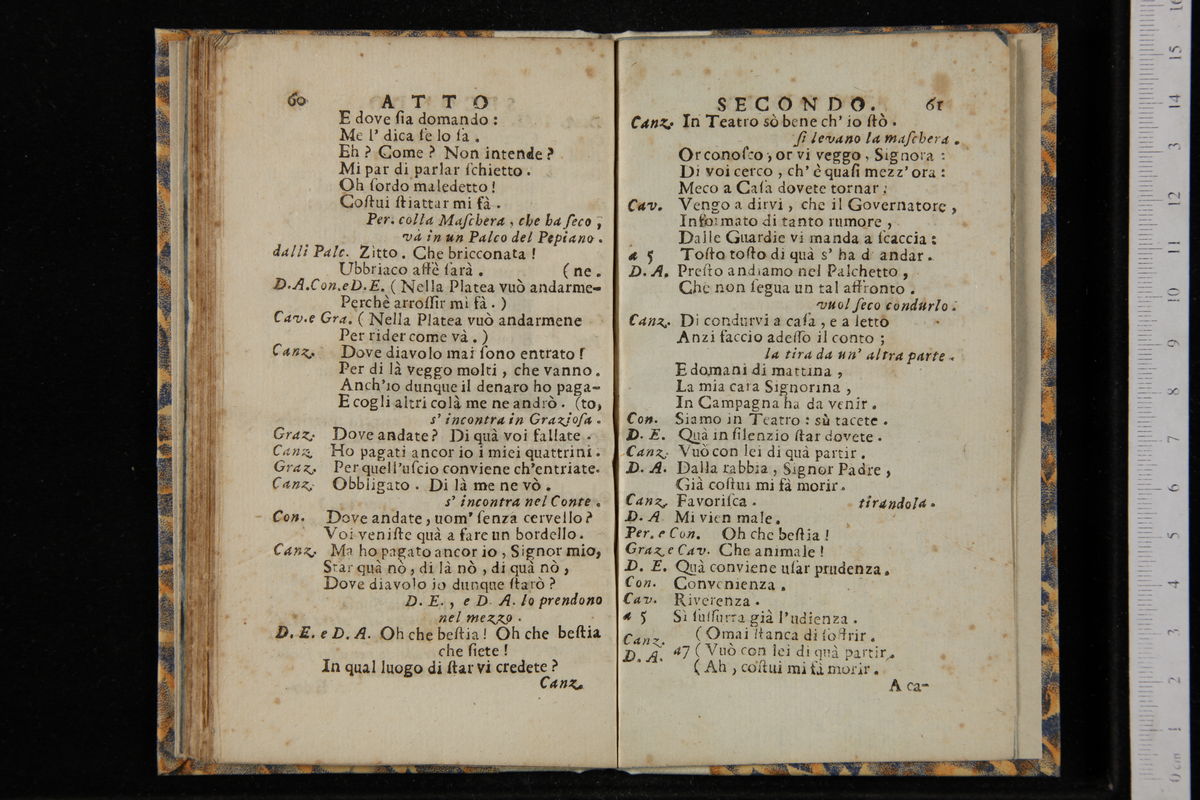 60 ATTO
E dove ſia domando :
Me l' dica ſe lo ſa .
Eh ? Come ? Non intende ?
Mi par di parlar ſchietto .
Oh ſordo maledetto !
Coſtui ſtiattar mi fà .
Per. colla Maſchera , che ha ſeco ,
và in un Palco del Pepiano .
dalli Palc. Zitto . Che bricconata !
Ubbriaco affè ſarà . ( ne .
D.A.Con.eD.E. ( Nella Platea vuò andarme-
Perchè arroſſir mi fà . )
Cav.e Gra. ( Nella Platea vuò andarmene
Per rider come và . )
Canz. Dove diavolo mai ſono entrato ?
Per di là veggo molti , che vanno .
Anch'io dunque il denaro ho paga-
E cogli altri colà me ne andrò . (to,
s' incontra in Grazioſa .
Graz. Dove andate ? Di quà voi fallate .
Canz. Ho pagati ancor io i miei quattrini .
Graz. Per quell'uſcio conviene ch'entriate.
Canz. Obbligato . Di là me ne vò .
s' incontra nel Conte .
Con. Dove andate , uom' ſenza cervello ?
Voi veniſte quà a fare un bordello .
Canz. Ma ho pagato ancor io , Signor mio,
Star quà nò , di là nò , di quà nò ,
Dove diavolo io dunque ſtarò ?
D. E. , e D. A. lo prendono
nel mezzo .
D. E. e D. A. Oh che beſtia ! Oh che beſtia
che ſiete !
In qual luogo di ſtar vi credete ?
Canz.
SECONDO. 61
Canz. In Teatro sò bene ch' io ſtò .
ſi levano la maſchera .
Or conoſco , or vi veggo , Signora :
Di voi cerco , ch' è quaſi mezz' ora :
Meco a Caſa dovete tornar ;
Cav. Vengo a dirvi , che il Governatore ,
Informato di tanto rumore ,
Dalle Guardie vi manda a ſcaccia :
a 5 Toſto toſto di quà s' ha d' andar .
D. A. Preſto andiamo nel Palchetto ,
Che non ſegua un tal affronto .
vuol ſeco condurlo .
Canz. Di condurvi a caſa , e a letto
Anzi faccio adeſſo il conto ;
la tira da un' altra parte .
E domani di mattina ,
La mia cara Signorina ,
In Campagna ha da venir .
Con. Siamo in Teatro : sù tacete .
D. E. Quà in ſilenzio ſtar dovete .
Canz. Vuò con lei di quà partir .
D. A. Dalla rabbia , Signor Padre ,
Già coſtui mi fà morir .
Canz. Favoriſca . tirandola .
D. A Mi vien male .
Per. e Con. Oh che beſtia !
Graz e Cav. Che animale !
D. E. Quà conviene uſar prudenza .
Con. Convenienza .
Cav. Riverenza .
a 5 Si ſuſſurra già l'udienza .
Canz. ( Omai ſtanca di ſoffrir .
D. A. a7 ( Vuò con lei di quà partir .
( Ah , coſtui mi fà morir .
A ca-